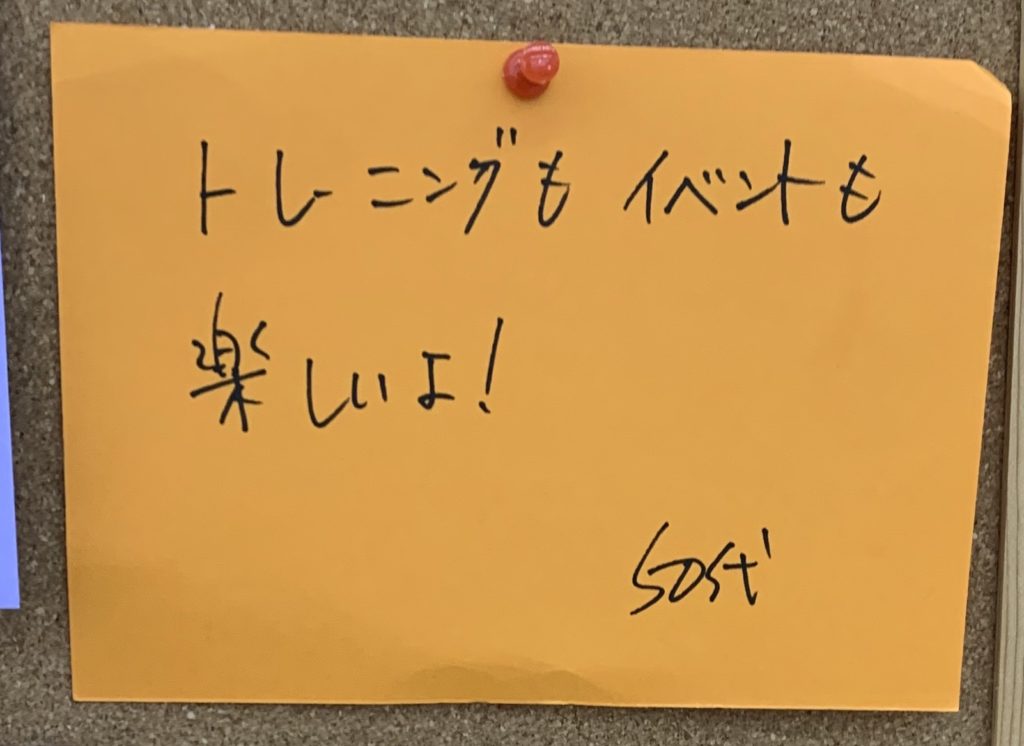 トレーニングも イベントも
楽しいよ!
50代